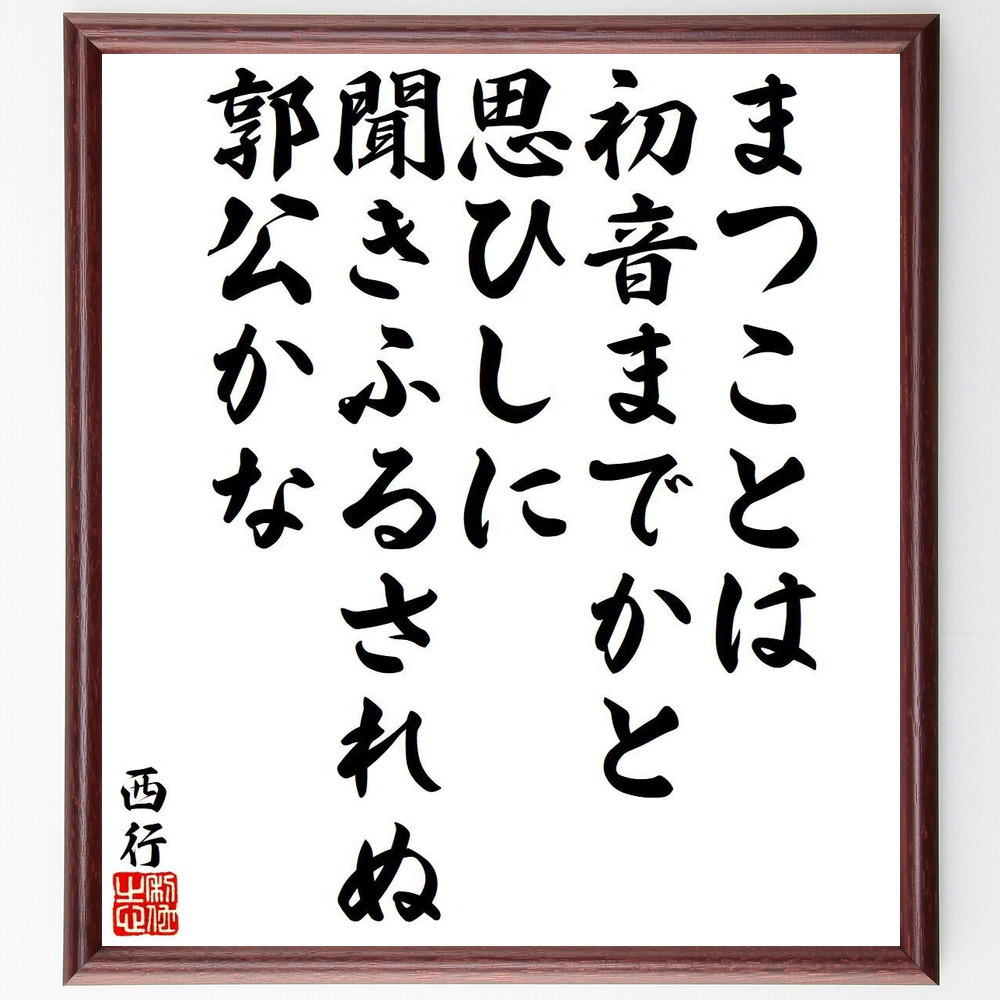 まつことは
初音までかと
思ひしに
聞きふるされぬ
郭公かな
西行